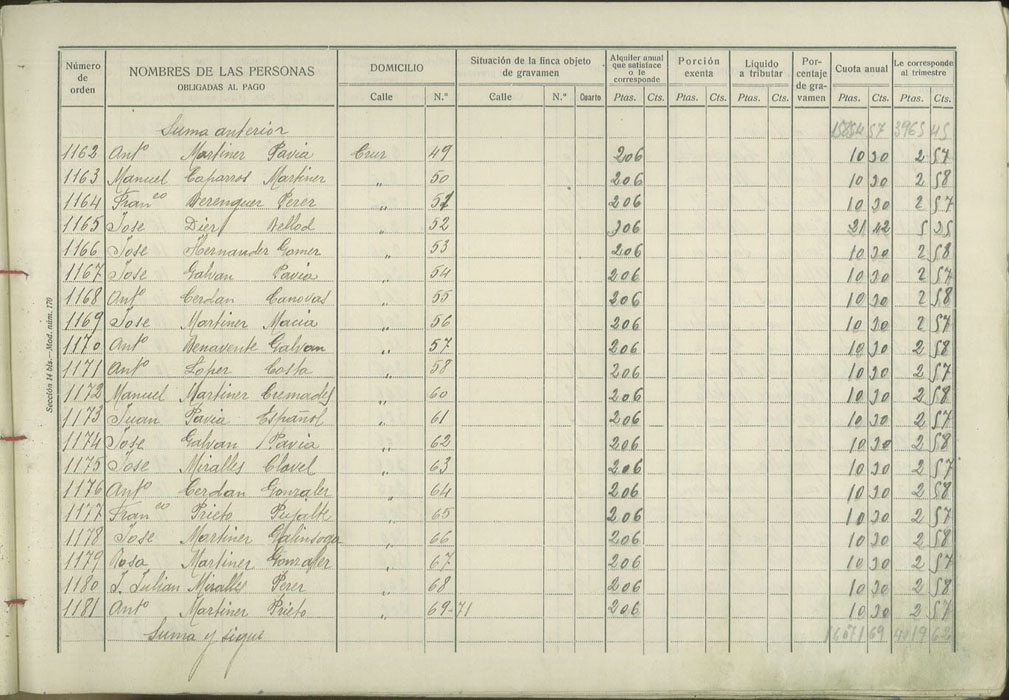 Número de orden
NOMBRES DE LAS PERSONAS OBLIGADAS AL PAGO
DOMICILIO
Calle N.º
Situación de la finca objeto de gravamen
Calle N.º Cuarto
Alquiler anual que satisface o le corresponde
Ptas. Cts.
Porción exenta
Ptas. Cts.
Líquido a tributar
Ptas. Cts.
Porcentaje de gravamen
Cuota anual
Ptas. Cts.
Le corresponde al trimestre
Ptas. Cts.
Suma anterior 15854 57 3963 45
1162 Antº Martinez Pavia Cruz 49 206 10 30 2 57
1163 Manuel Caparros Martinez " 50 206 10 30 2 58
1164 Franco Berenguer Perez " 51 206 10 30 2 57
1165 Jose Diez Bellod " 52 306 21 42 5 35
1166 Jose Hernandez Gomez " 53 206 10 30 2 58
1167 Jose Galvan Pavia " 54 206 10 30 2 57
1168 Antº Cerdan Canovas " 55 206 10 30 2 58
1169 Jose Martinez Macia " 56 206 10 30 2 57
1170 Antº Benavente Galvan " 57 206 10 30 2 58
1171 Antº Lopez Costa " 58 206 10 30 2 57
1172 Manuel Martinez Cremades " 60 206 10 30 2 58
1173 Juan Pavia Español " 61 206 10 30 2 57
1174 Jose Galvan Pavia " 62 206 10 30 2 58
1175 Jose Miralles Clavel " 63 206 10 30 2 57
1176 Antº Cerdan Gonzalez " 64 206 10 30 2 58
1177 Franco Prieto Pujalte " 65 206 10 30 2 57
1178 Jose Martinez Galinsoga " 66 206 10 30 2 58
1179 Rosa Martinez Gonzalez " 67 206 10 30 2 57
1180 J. Julian Miralles Perez " 68 206 10 30 2 58
1181 Antº Martinez Prieto " 69-71 206 10 30 2 57
Suma y sigue 69 62
Sección 14 bis.—Mod. núm. 179